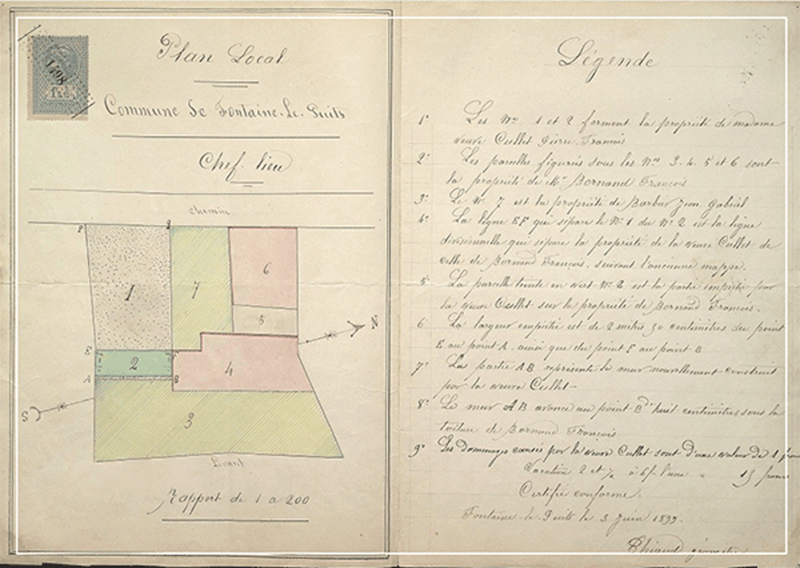 1498
Plan Local
Commune de Fontaine-le-Puits
Chef-lieu
Chemin
1
7
6
5
E
2
4
A
B
N
S
3
Levant
Rapport de 1 a 200
Légende
1° Les Nos 1 et 2 forment la propriété de madame
veuve Cullet Pierre-François
2° Les parcelles figurées sous les Nos 3. 4. 5 et 6 sont
la propriété de Mr Bornand François
3° Le No 7 est la propriété de Barbar Jean Gabriel
4° La ligne EF qui sépare le No 1 du No 2 est la ligne
divisionnelle qui sépare la propriété de la veuve Cullet de
celle de Bornand François, suivant l'ancienne mappe.
5° La parcelle teinte en vert No 2 est la partie empiétée par
la veuve Cullet sur la propriété de Bornand François.
6° La largeur empiétée est de 2 mètres 50 centimètres du point
E au point A ainsi que du point F au point B
7° La partie AB représente le mur nouvellement construit
par la veuve Cullet
8° Le mur AB avance au point B d'huit centimètres sous la
toiture de Bornand François
9° Les dommages causés par la veuve Cullet sont d'une valeur de 1
Vacation 2 et 1/2 à 6f l'une 15 francs
Certifié conforme
Fontaine le Puits le 3 Juin 1899.
géomètre